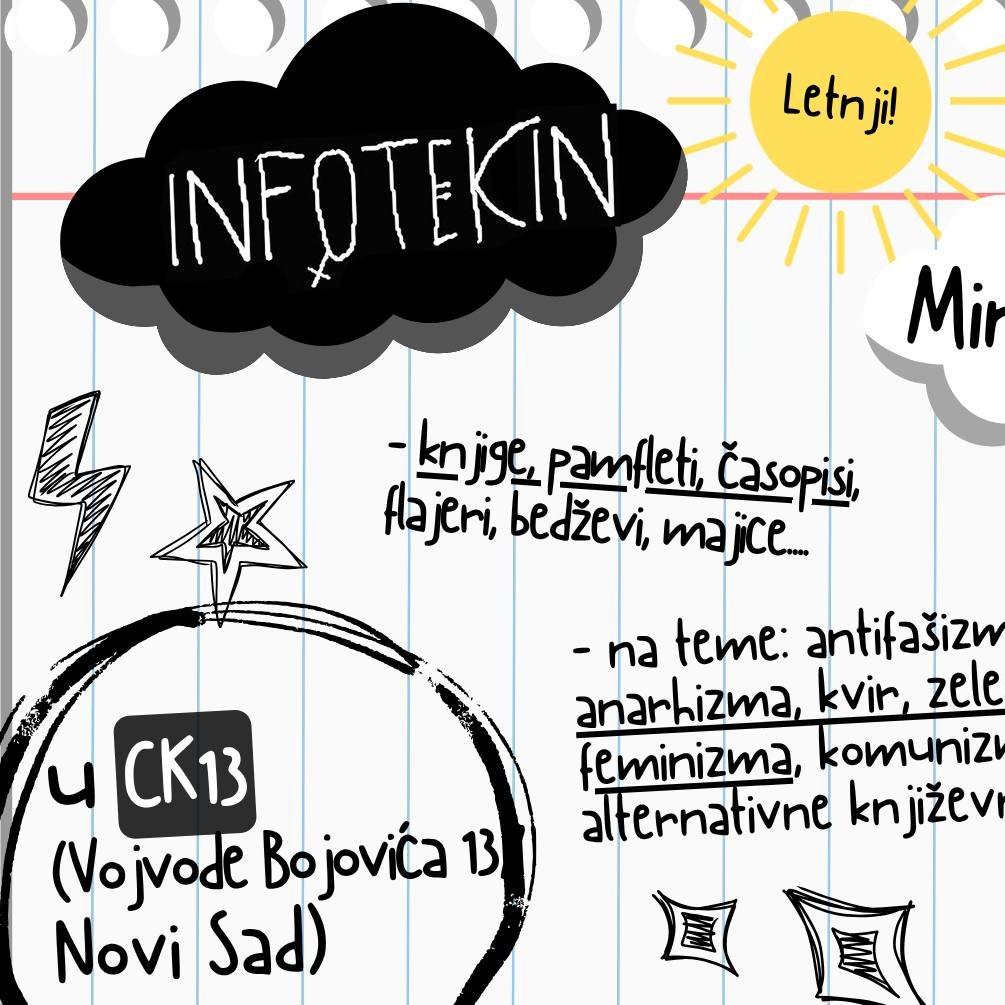 Letnji!
INFOTEKIN
- knjige, pamfleti, časopisi,
flajeri, bedževi, majice....
- na teme:
anarhizma, kvir,
feminizma,
alternativne
u CK13
(Vojvode Bojovića 13
Novi Sad)